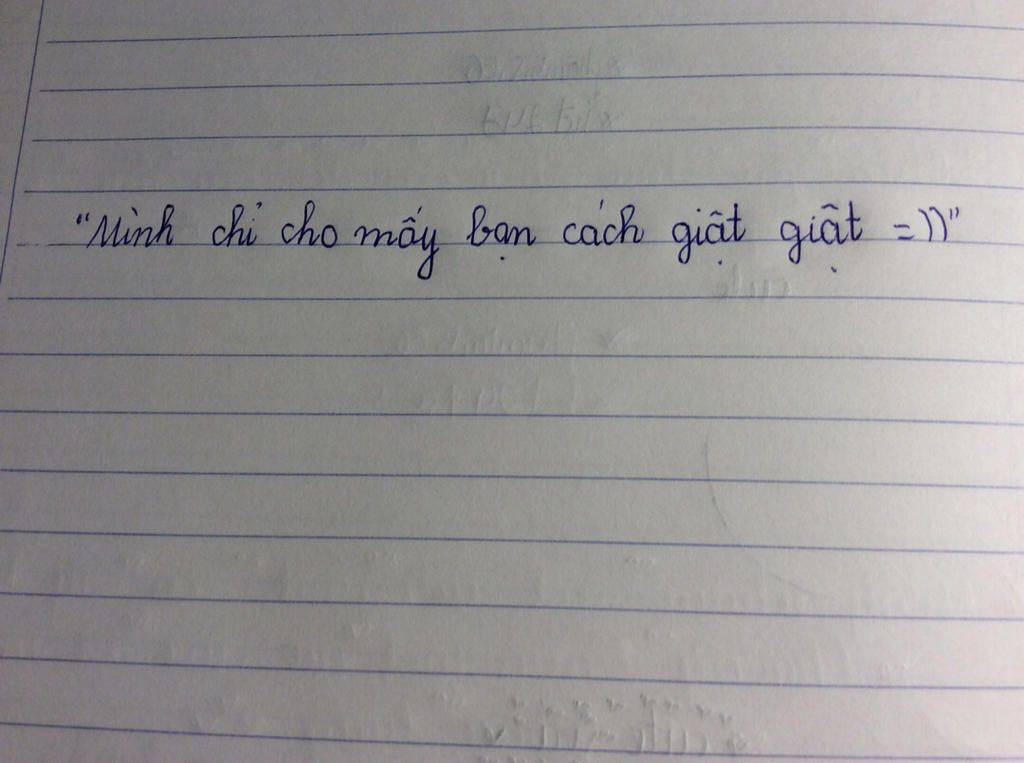 "Mình chỉ cho mấy bạn cách giật giật =))"